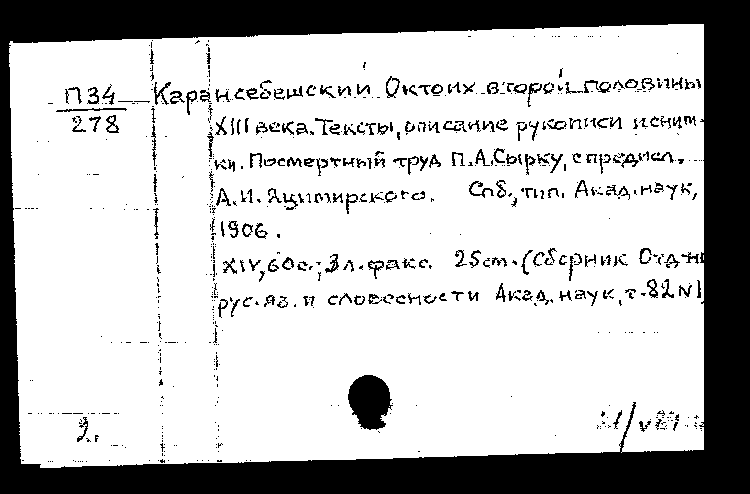 П34
278
Карансебешский Октоих второй половины
XIII века. Тексты, описание рукописи и сним-
ки. Посмертный труд П.А.Сырку, с предисл.
А.И. Яцимирского. Спб., тип. Акад. наук,
1906.
XIV, 60с.; 3л. факс. 25см. (Сборник Отд-ни
рус. яз. и словесности Акад. наук, т. 82 N1
2.